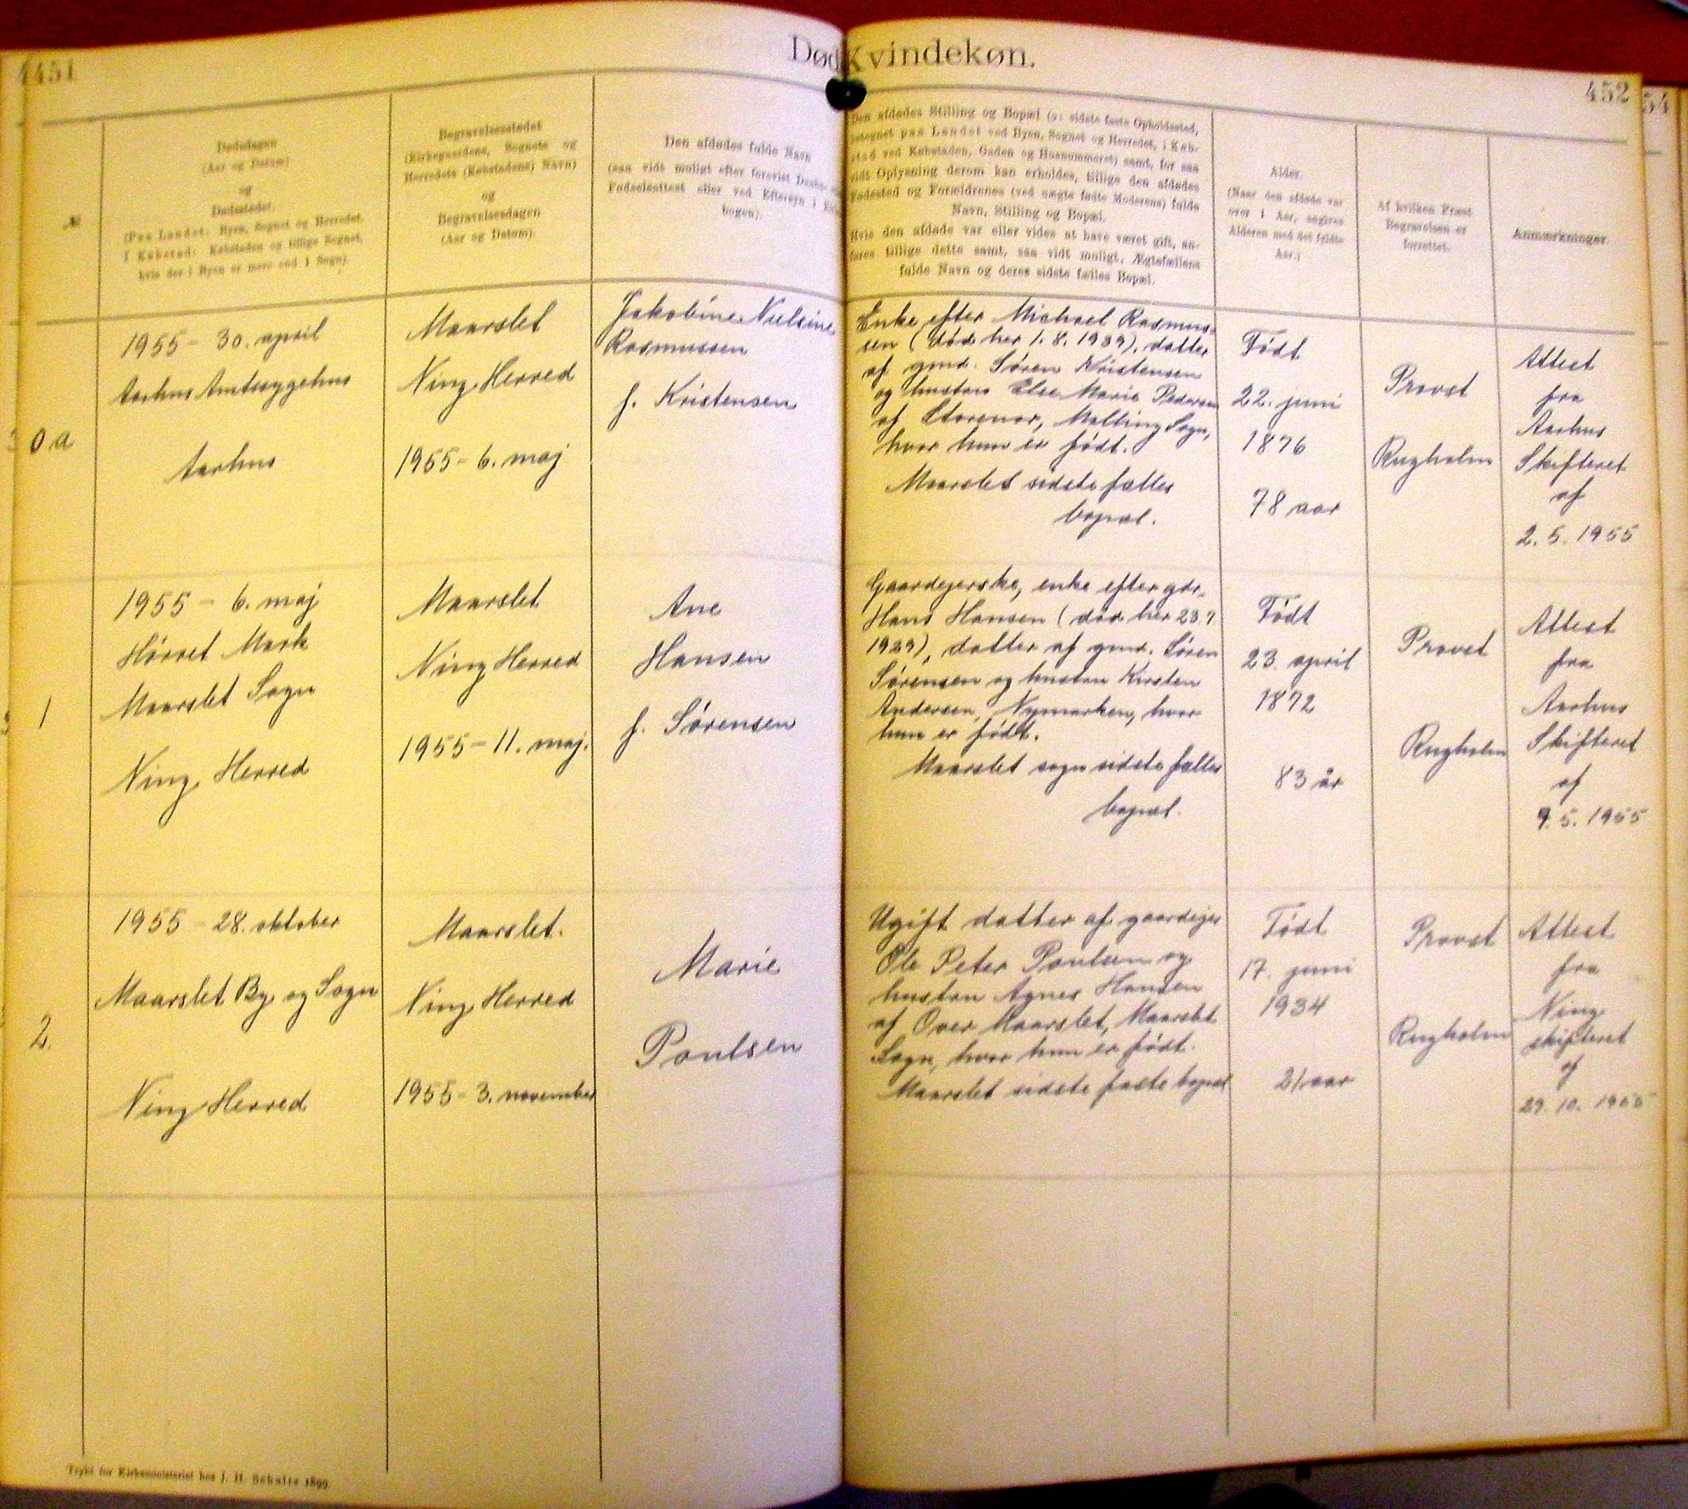 451
Død
Kvindekøn.
452
54
№
Dødsdagen
(Aar og Datum)
og
Dødsstedet.
(Paa Landet: Byen, Sognet og Herredet.
I Købstad: Købstaden og tillige Sognet,
hvis der i Byen er mere end 1 Sogn).
Begravelsesstedet
(Kirkegaardens, Sognets og
Herredets (Købstadens) Navn)
og
Begravelsesdagen
(Aar og Datum).
Den afdødes fulde Navn
(saa vidt muligt efter forevist
Fødselsattest eller ved Eftersyn i
bogen).
Den afdødes Stilling og Bopæl (ɔ: sidste faste Opholdssted,
betegnet paa Landet ved Byen, Sognet og Herredet, i Køb-
stad ved Købstaden, Gaden og Husnummeret) samt, for saa
vidt Oplysning derom kan erholdes, tillige den afdødes
Fødested og Forældrenes (ved uægte fødte Moderens) fulde
Navn, Stilling og Bopæl.
Hvis den afdøde var eller vides at have været gift, an-
føres tillige dette samt, saa vidt muligt, Ægtefællens
fulde Navn og deres sidste fælles Bopæl.
Alder.
(Naar den afdøde var
over 1 Aar, angives
Alderen med det fyldte
Aar.)
Af hvilken Præst
Begravelsen er
forrettet.
Anmærkninger.
0a
1955 - 30. april
Aarhus Amtssygehus
Aarhus
Maarslet
Ning Herred
1955 - 6. maj
Jakobine Nielsine
Rasmussen
f. Kristensen
Enke efter Michael Rasmus-
sen (død her 1.8.1939), datter
af gmd. Søren Kristensen
og hustru Else Marie Pedersen
af Starenor, Malling Sogn,
hvor hun er født.
Maarslet sidste fælles
bopæl.
Født
22. juni
1876
78 aar
Provst
Rugholm
Attest
fra
Aarhus
Skifteret
af
2.5.1955
1
1955 - 6. maj
Hørret Mark
Maarslet Sogn
Ning Herred
Maarslet
Ning Herred
1955 - 11. maj.
Ane
Hansen
f. Sørensen
Gaardejerske, enke efter gdr.
Hans Hansen (død her 23.7
1929), datter af gmd. Søren
Sørensen og hustru Kirsten
Andersen, Nymarken, hvor
hun er født.
Maarslet sogn sidste fælles
bopæl.
Født
23. april
1872
83 år
Provst
Rugholm
Attest
fra
Aarhus
Skifteret
af
9.5.1955
2.
1955 - 28. oktober
Maarslet By og Sogn
Ning Herred
Maarslet.
Ning Herred
1955 - 3. november
Marie
Poulsen
Ugift datter af gaardejer
Ole Peter Poulsen og
hustru Agnes Hansen
af Over Maarslet, Maarslet
Sogn, hvor hun er født.
Maarslet sidste faste bopæl
Født
17. juni
1934
21 aar
Provst
Rugholm
Attest
fra
Ning
skifteret
af
29.10.1955
Trykt for Kirkeministeriet hos J. H. Schultz 1899